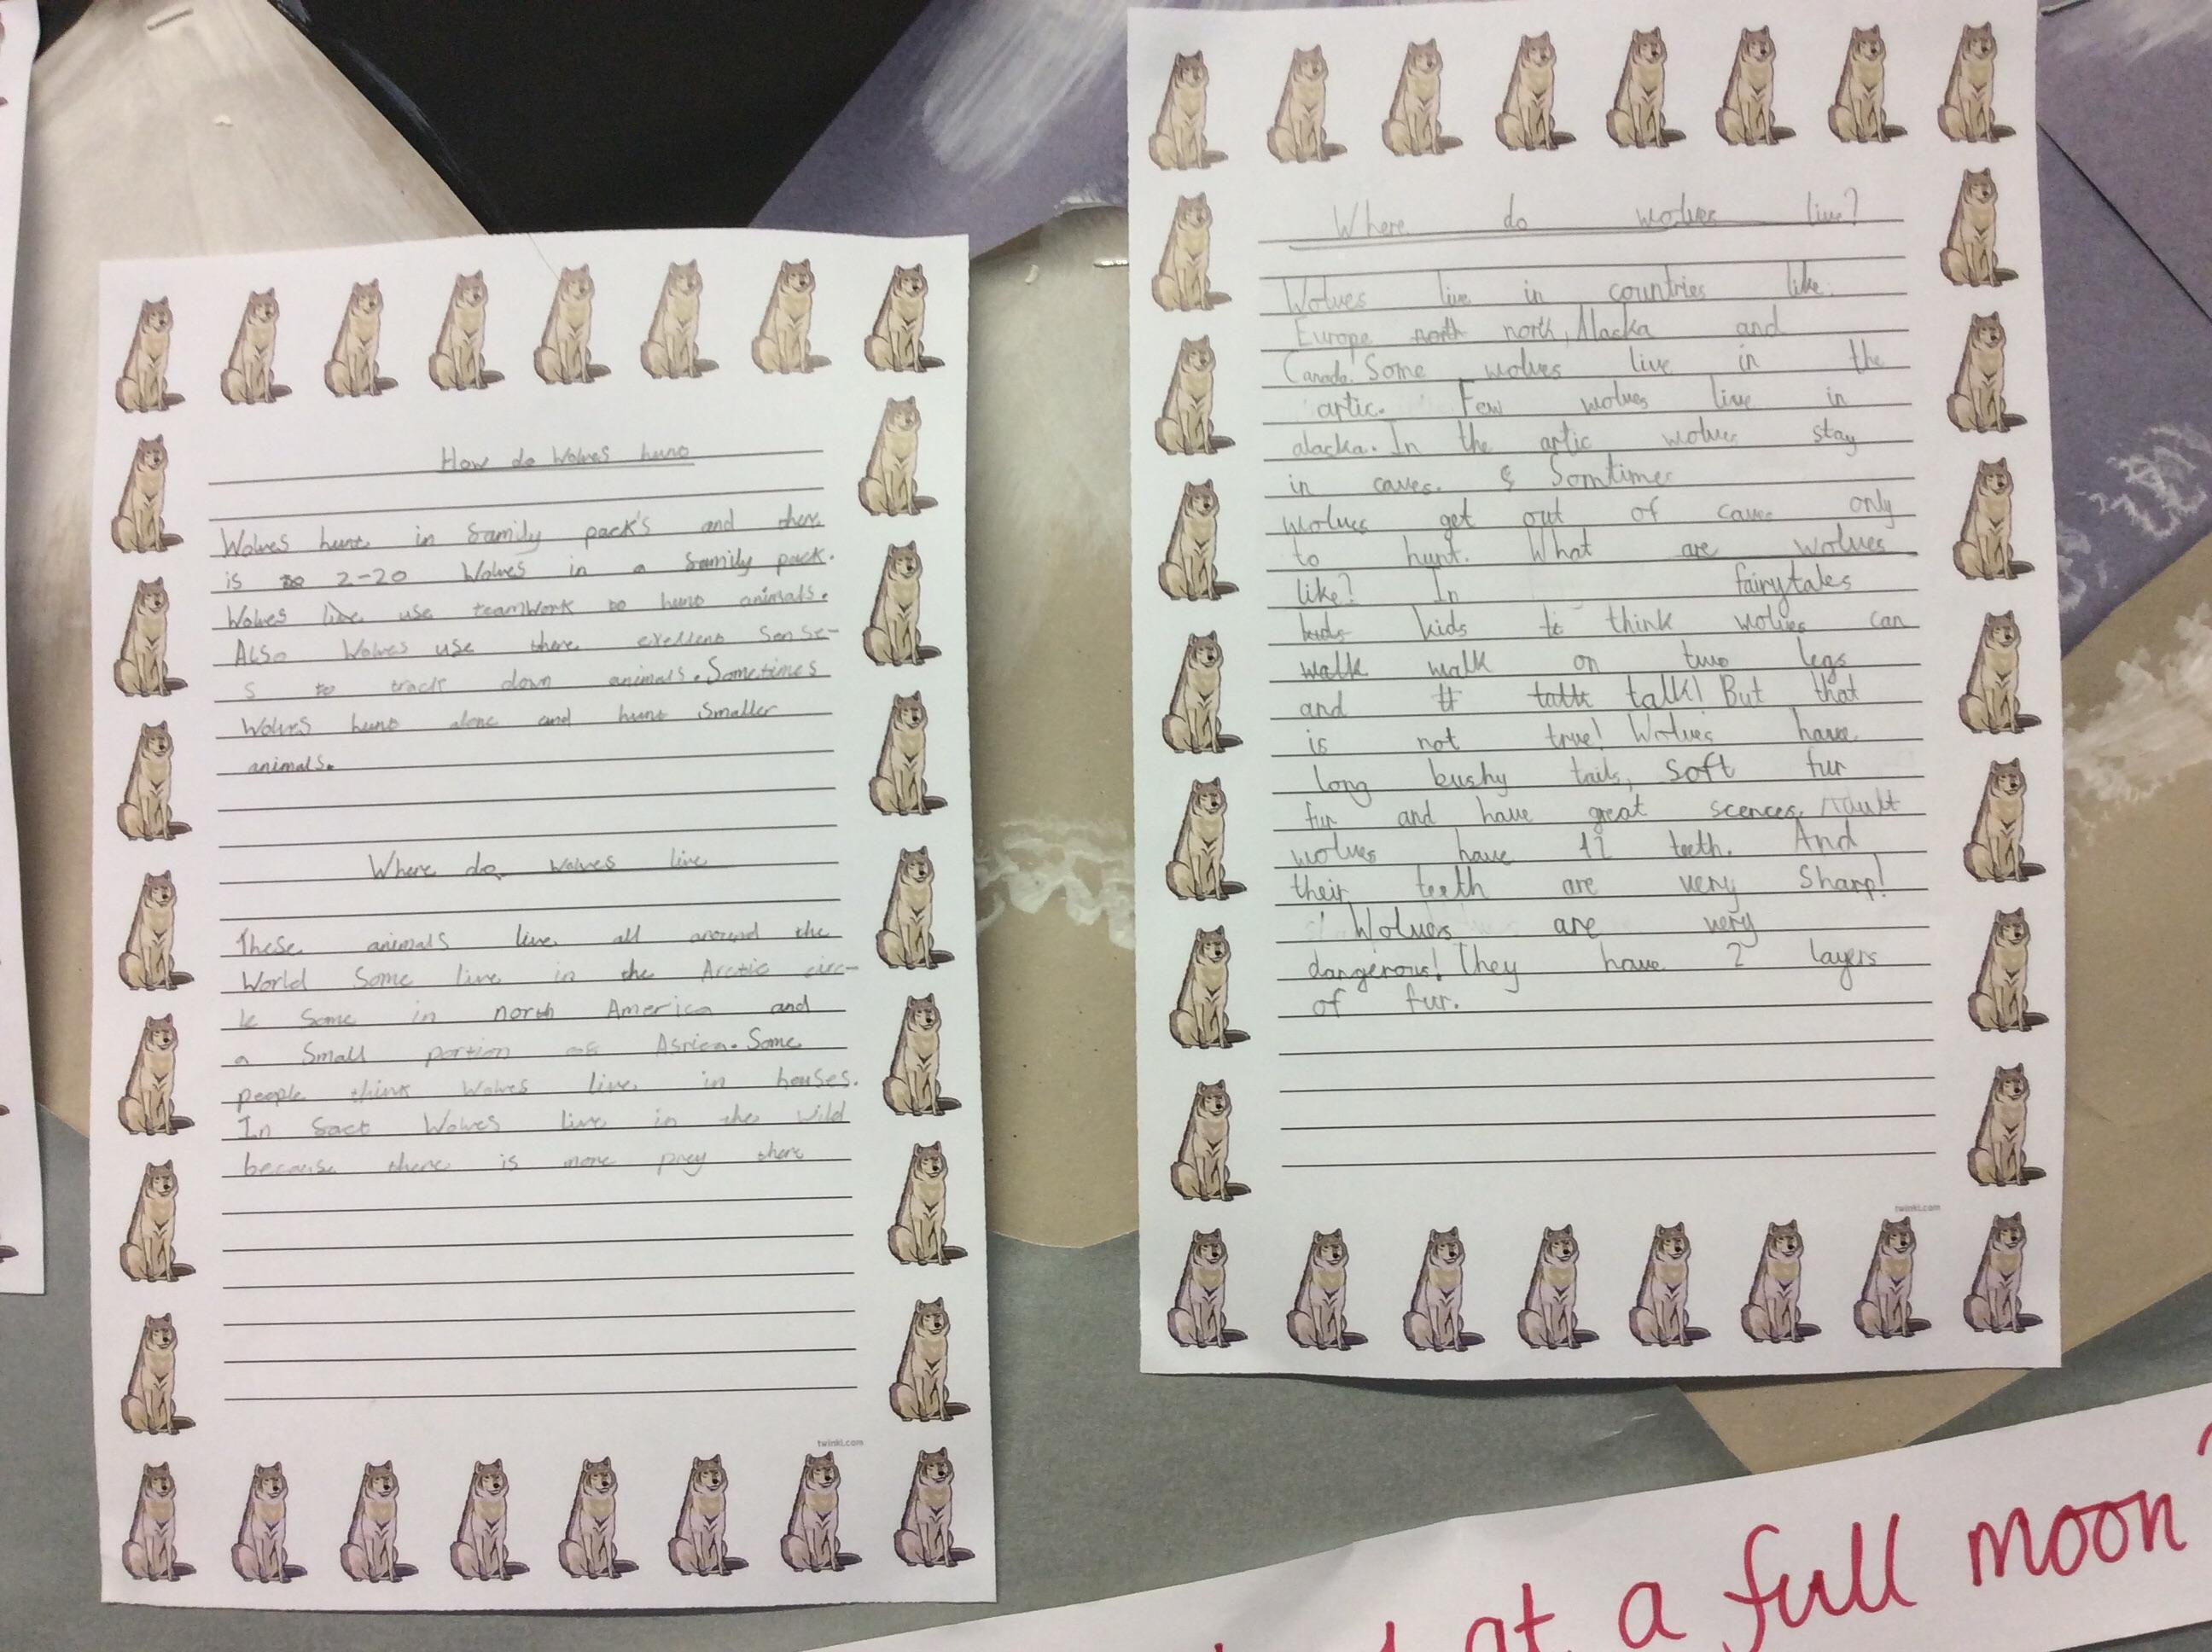 How do Wolves hunt
Wolves hunt in family pack's and there
is to 2-20 Wolves in a family pack.
Wolves like use teamwork to hunt animals.
Also Wolves use there exellent sense-
s to track down animals. Sometimes
Wolves hunt alone and hunt smaller
animals.
Where do wolves live
These animals live all around the
World Some live in the Arctic circ-
le Some in north America and
a Small portion of Africa. Some
people think Wolves live in houses.
In fact Wolves live in the wild
because there is more prey there
twinkl.com
Where do wolves live?
Wolves live in countries like
Europe north north, Alacka and
Canada. Some wolves live in the
artic. Few wolves live in
alacka. In the artic wolves stay
in caves. Somtimes
wolves get out of caves only
to hunt. What are wolves
like? In fairytales
kids kids to think wolves can
walk walk on two legs
and tt talk talk! But that
is not true! Wolves have
long bushy tails, soft fur
fur and have great scences. Adult
wolves have 42 teeth. And
their teeth are very sharp!
Wolves are very
dangerous! They have 2 layers
of fur.
twinkl.com
at a full moon?